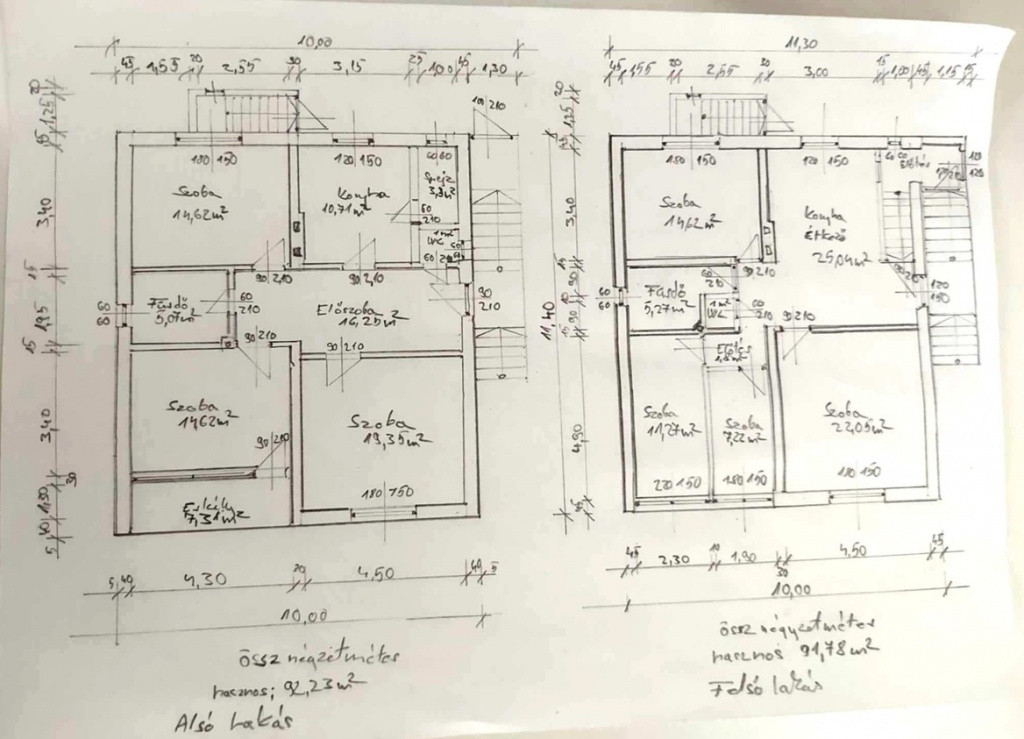 10,00
45 1,55 20 2,55 30 3,15 25 1,00 45 1,30
20
1,25
45
3,40
15
1,95
15
3,40
30
1,50
40
5
100 210
180 150
120 150
60 60
Szoba
14,62 m²
Konyha
10,71 m²
Spejz
60
210
1 m²
WC
90 210
90 210
60
60
Fürdő
5,07 m²
60
210
Előszoba
16,25 m²
90
210
90 210
90 210
Szoba
14,62 m²
Szoba
19,35 m²
90 210
Erkély
7,31 m²
180 150
5 40 4,30 20 4,50 40 5
10,00
össz négyzetméter
hasznos: 92,23 m²
Alsó lakás
11,30
45 1,55 20 2,55 30 3,00 15 1,00 45 1,15 15
20
1,25
45
3,40
15
90
10
90
15
4,90
45
11,40
180 150
120 150
60 60
120
120
Szoba
14,62 m²
Konyha
Étkező
25,04 m²
90 210
60
60
Fürdő
5,27 m²
60
210
1 m²
WC
60
210
120
150
90 210
Előtér
Szoba
11,27 m²
Szoba
7,22 m²
Szoba
22,05 m²
220 150
180 150
180 150
45 2,30 10 1,90 30 4,50 45
10,00
össz négyzetméter
hasznos 91,78 m²
Felső lakás